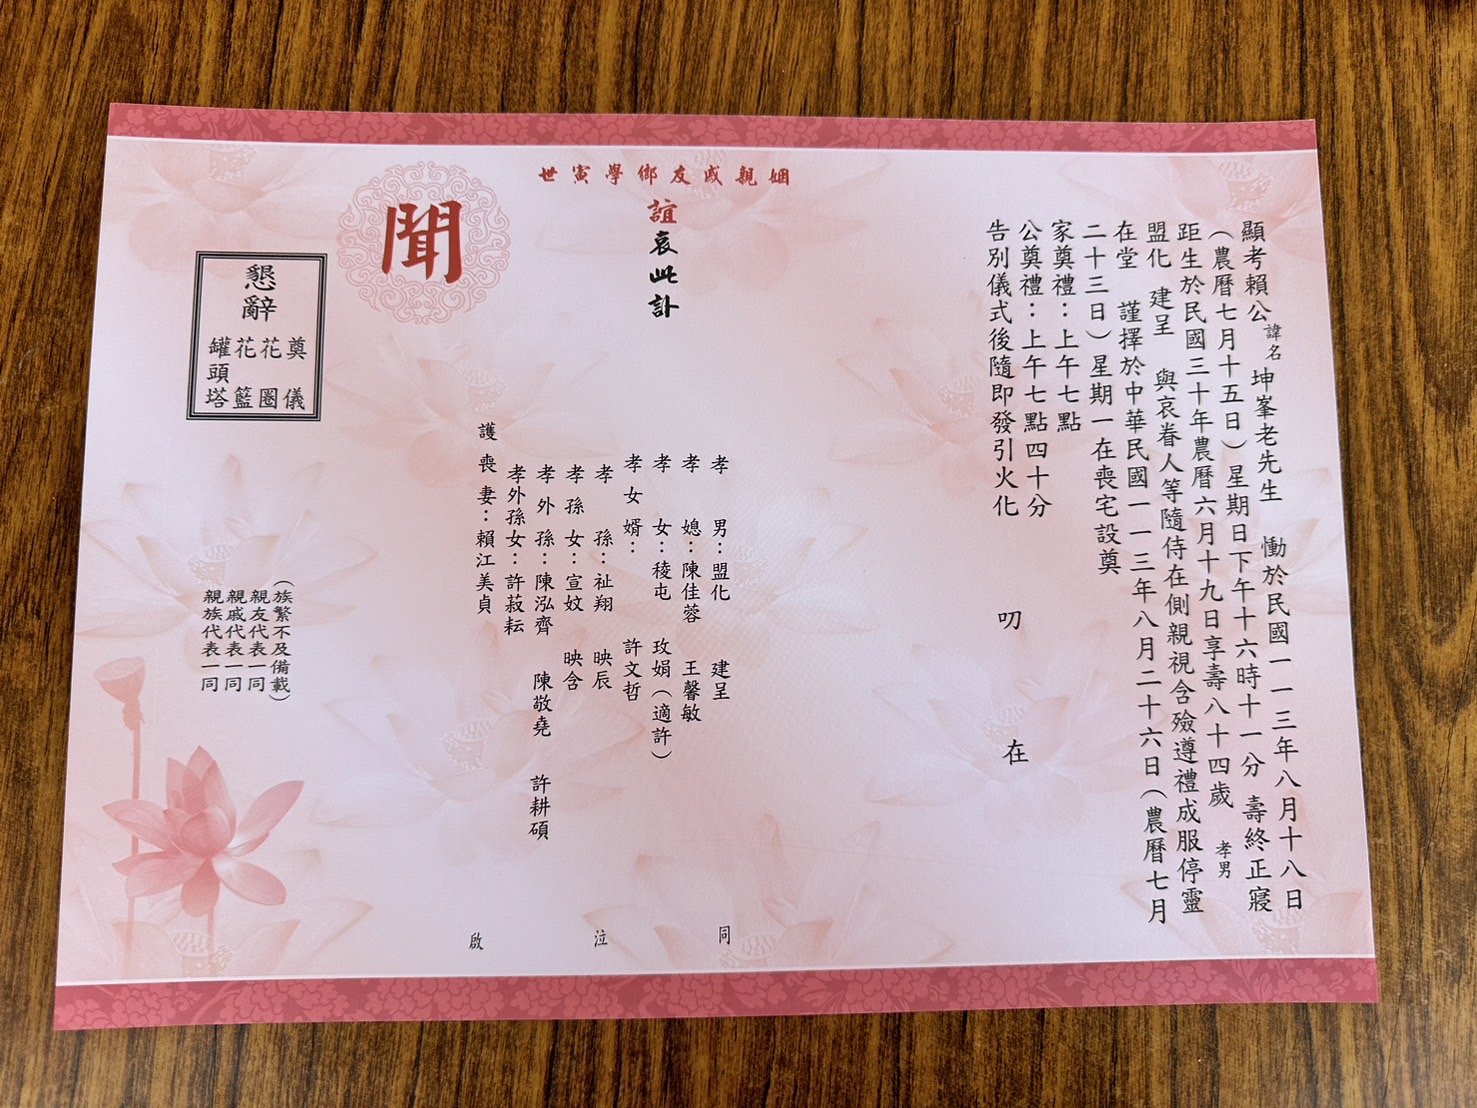 顯考賴公諱名坤峯老先生 慟於民國一一三年八月十八日
（農曆七月十五日）星期日下午十六時十一分 壽終正寢
距生於民國三十年農曆六月十九日享壽八十四歲 孝男
盟化 建呈 與哀眷人等隨侍在側親視含殮遵禮成服停靈
在堂 謹擇於中華民國一一三年八月二十六日（農曆七月
二十三日）星期一在喪宅設奠
家奠禮：上午七點
公奠禮：上午七點四十分
告別儀式後隨即發引火化
叨 在
姻親戚友鄉學寅世
誼哀此訃
聞
孝 男：盟化 建呈
孝 媳：陳佳蓉 王馨敏
孝 女：稜屯 玫娟（適許）
孝女婿： 許文哲
孝 孫：祉翔 映辰
孝孫女：宣妏 映含
孝外孫：陳泓齊 陳敬堯 許耕碩
孝外孫女：許菽耘
護喪妻：賴江美貞
同 泣 啟
（族繁不及備載）
親友代表一同
親戚代表一同
親族代表一同
懇辭
奠儀
花圈
花籃
罐頭塔